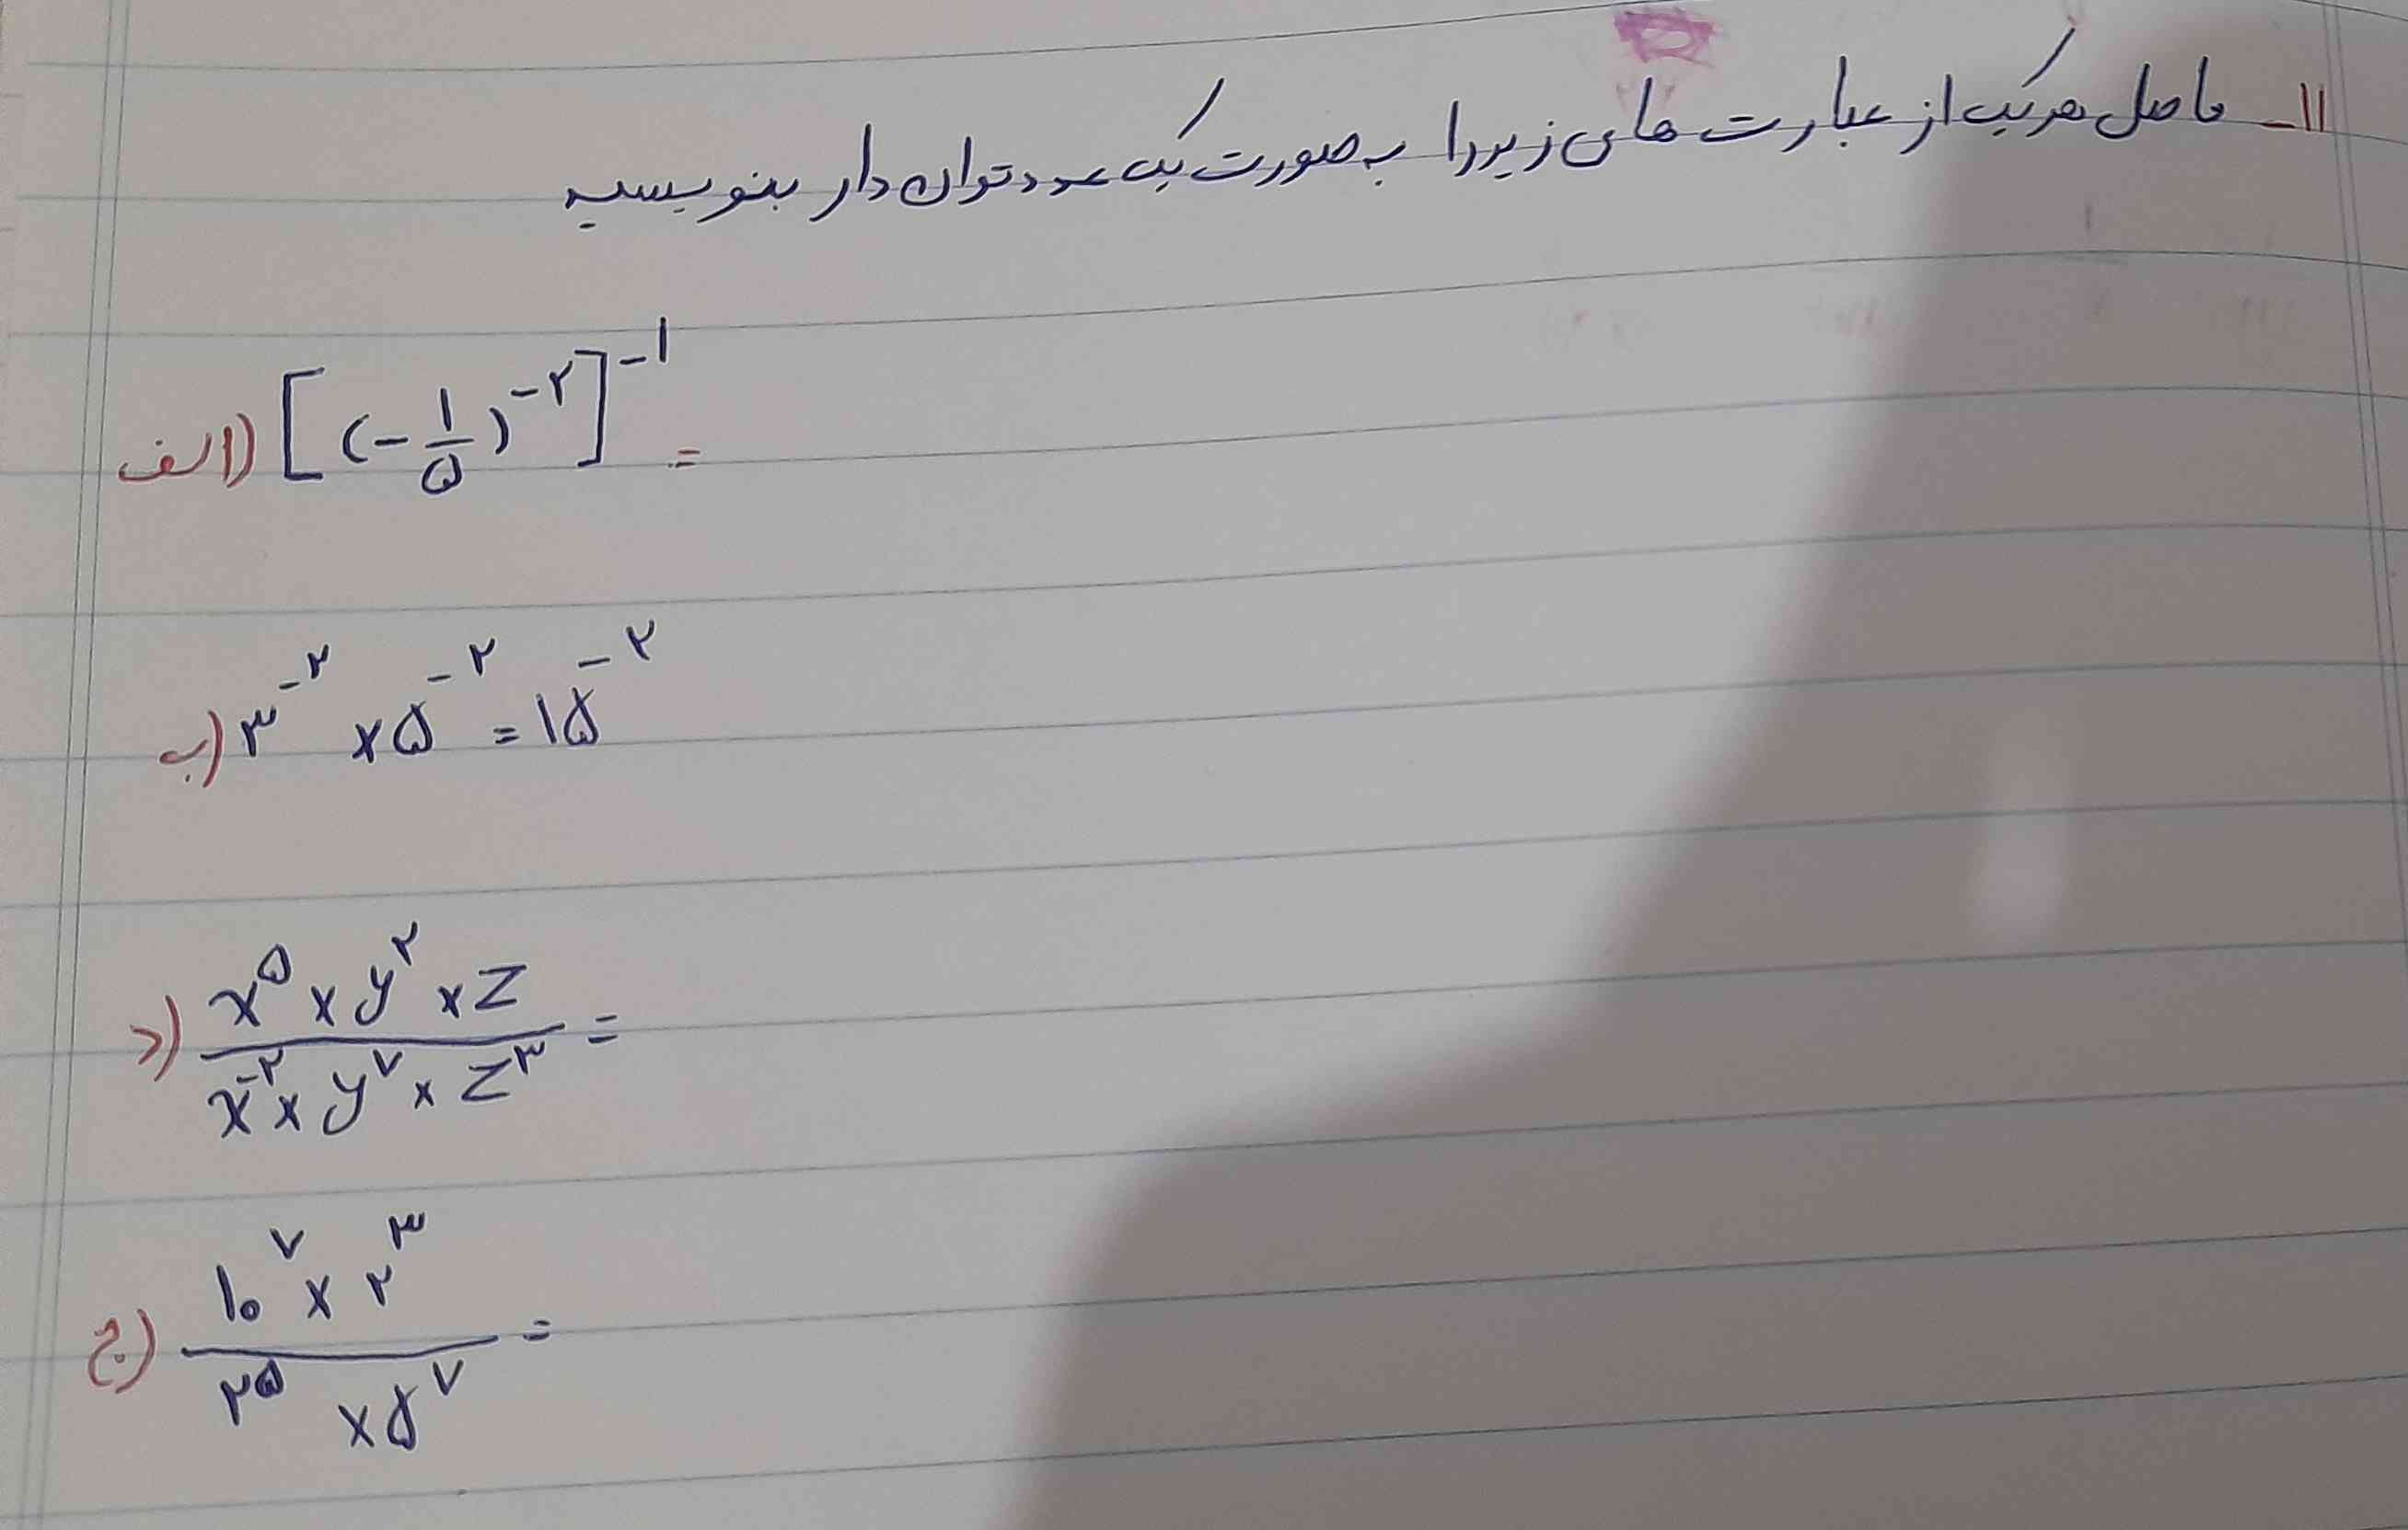 ۱۱- حاصل هر یک از عبارت های زیر را به صورت یک عدد توان دار بنویسید
الف) [(-۱/۵)^-۲]^-۱ =
ب) ۳^-۲ × ۵^-۲ = ۱۵^-۲
د) (x^۵ × y^۲ × z) / (x^-۲ × y^۷ × z^۳) =
ج) (۱۰^۷ × ۲^۳) / (۲^۵ × ۵^۷) =